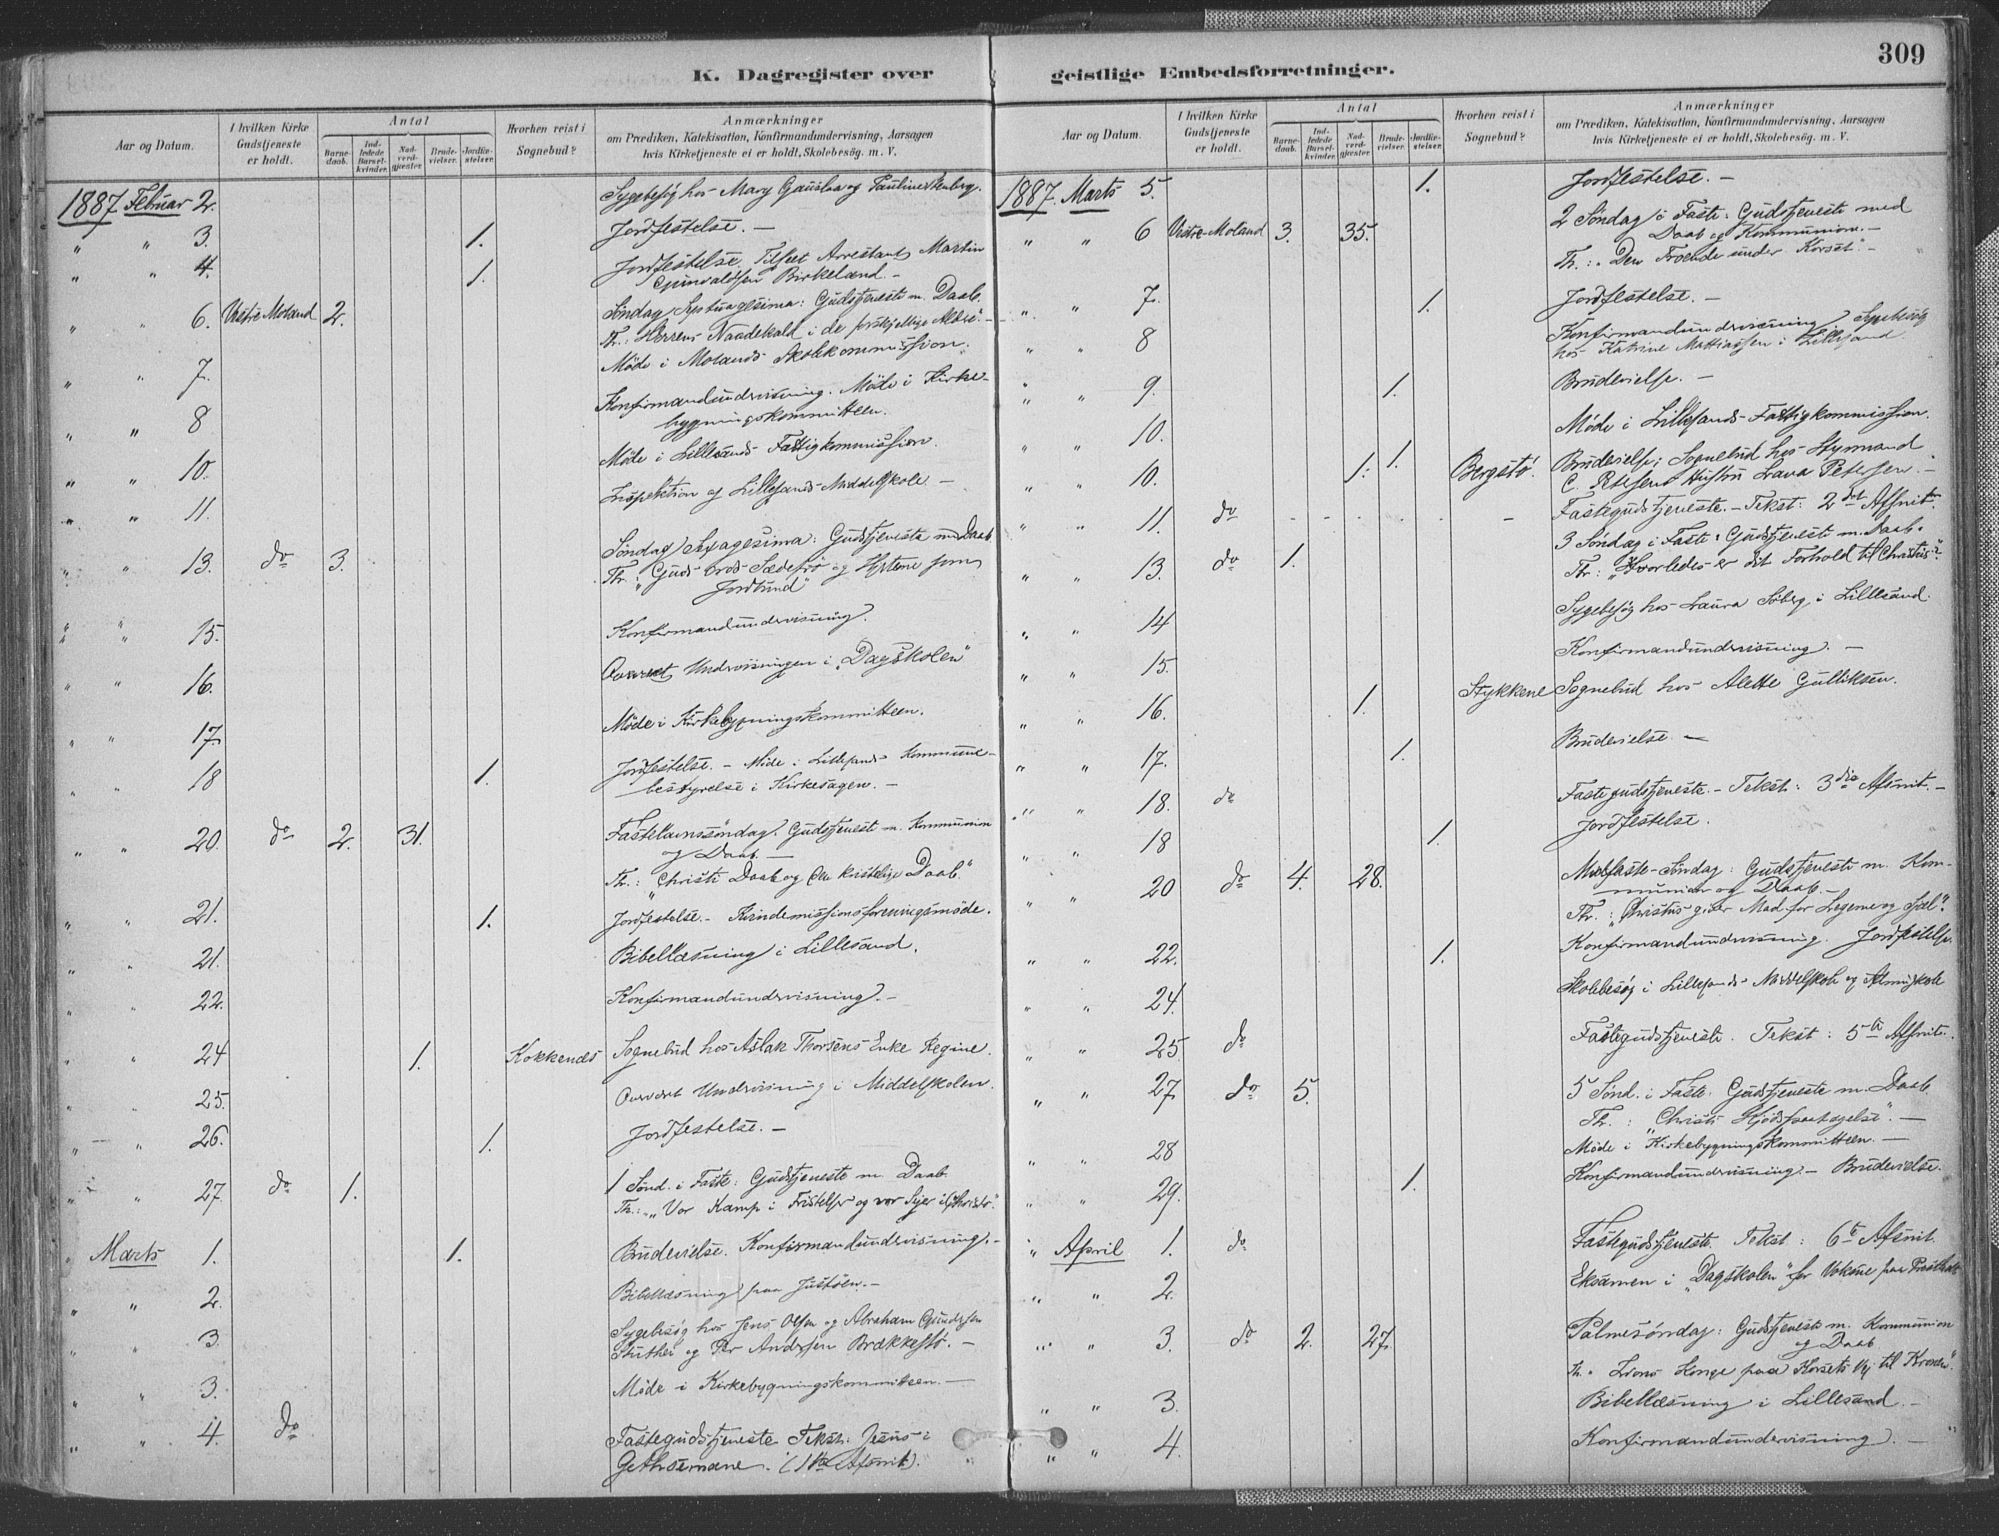 309
K. Dagregister over geistlige Embedsforretninger.
Aar og Datum.
I hvilken Kirke Gudstjeneste er holdt.
Antal
Barnedaab.
Indledede Barselkvinder.
Nadverdgjester.
Brudevielser.
Jordfæstelser.
Hvorhen reist i Sognebud?
Anmærkninger
om Prædiken, Katekisation, Konfirmandundervisning, Aarsagen
hvis Kirketjeneste ei er holdt, Skolebesøg. m. V.
1887 Februar 2. Sygebesøg hos Mary Gauslaa og Pauline
" " 3. 1. Jordfestelse. —
" " 4. 1. Jordfestelse. Tilseet Arrestant Martin
Birkeland. —
" " 6. Vestre Moland 2. Søndag Septuagesima: Gudstjeneste m. Daab.
Th.: Herrens Naadekald i de forskjellige Aldre". —
" " 7. Møde i Molands Skolekommission.
" " 8 Konfirmandundervisning. Møde i Kirke-
bygningskommitteen.
" " 10. Møde i Lillesands Fattigkommission.
" " 11. Inspektion af Lillesands Middelskole. —
" " 13. do 3. Søndag Sexagesima: Gudstjeneste med Daab
Th.: "Guds Ords Sædefrø og Hjertene som
Jordbund"
" " 15. Konfirmandundervisning.
" " 16. Overværet Undervisningen i "Dagskolen"
" " 17. Møde i Kirkebygningskommitteen.
" " 18 1. Jordfestelse. — Møde i Lillesands Kommune-
bestyrelse i Kirkesagen. —
" " 20. do 2. 31. Fastelavnssøndag. Gudstjeneste m. Kommunion
og Daab. —
Th.: "Christi Daab og den kristelige Daab."
" " 21. 1. Jordfestelse. — Kvindemissionsforeningsmøde.
" " 21. Bibellæsning i Lillesand.
" " 22. Konfirmandundervisning. —
" " 24 1. Kokkenes Sognebud hos Aslak Thorsens Enke Regine.
" " 25. Overværet Undervisning i Middelskolen.
" " 26. 1. Jordfestelse. —
" " 27. do 1. 1 Sønd. i Faste: Gudstjeneste m. Daab
Th.: "Vor Kamp i Fristelser og vor Sejer i Christo".
" Marts 1. 1. Brudevielse. Konfirmandundervisning. —
" " 2. Bibellæsning paa Justøen. —
" " 3. Sygebesøg hos Jens Olsen og Abraham Gundersen
og Per Andersen Brækkestø. —
" " 3. Møde i Kirkebygningskommitteen. —
" " 4. do Fastegudstjeneste Tekst: Jesus i
Gethsemane. (1ste Afsnit).
Aar og Datum.
I hvilken Kirke Gudstjeneste er holdt.
Antal
Barnedaab.
Indledede Barselkvinder.
Nadverdgjester.
Brudevielser.
Jordfæstelser.
Hvorhen reist i Sognebud?
Anmærkninger
om Prædiken, Katekisation, Konfirmandundervisning, Aarsagen
hvis Kirketjeneste ei er holdt, Skolebesøg. m. V.
1887. Marts 5. 1. Jordfestelse. —
" " 6 Vestre-Moland 3. 35. 2 Søndag i Faste: Gudstjeneste med
Daab og Kommunion. —
Th.: "Den Troende under Korset". —
" " 7. 1. Jordfestelse. —
" " 8 Konfirmandundervisning Sygebesøg
hos Katrine Mathiassen i Lillesand.
" " 9. 1. Brudevielse. —
" " 10. Møde i Lillesands Fattigkommission.
" " 10. 1. 1. Bergstø. Brudevielse; Sognebud hos Styrmand
C. Petersens Hustru Lava Petersen. —
" " 11. do Fastegudstjeneste. — Tekst: 2det Afsnit.
" " 13. do 1. 3 Søndag i Faste: Gudstjeneste m. Daab.
Th.: "Hvorledes er dit Forhold til Christus?"
" " 14 Sygebesøg hos Laura Søberg i Lillesand.
" " 15. Konfirmandundervisning. —
" " 16. 1. Stykkene Sognebud hos Alette Gulliksen.
" " 17. 1. Brudevielse. —
" " 18. do Fastegudstjeneste. — Tekst: 3die Afsnit. —
" " 18 1. Jordfestelse.
" " 20 do 4. 28. Midfaste-Søndag: Gudstjeneste m. Kom-
munion og Daab. —
Th.: "Christus giver Mad for Legeme og Sjæl".
" " 22. 1. Konfirmandundervisning. Jordfestelse.
" " 24. Skolebesøg i Lillesands Middelskole og Almueskole
" " 25 do Fastegudstjeneste. Tekst: 5te Afsnit.
" " 27. do 5. 5 Sønd. i Faste. Gudstjeneste m. Daab
Th.: "Christi Kjødspaatagelse". —
" " 28 Møde i Kirkebygningskommitteen. —
" " 29. 1. Konfirmandundervisning. — Brudevielse.
" April 1. do Fastegudstjeneste. Tekst: 6te Afsnit.
" " 2. Eksamen i "Dagskolen" for Voksne paa
" " 3. do 2. 27. Palmesøndag: Gudstjeneste m. Kommunion
og Daab
Th. "Zions Konge paa Korsets Vej til Kronen"
" " 3. Bibellæsning i Lillesand. —
" " 4. Konfirmandundervisning. —